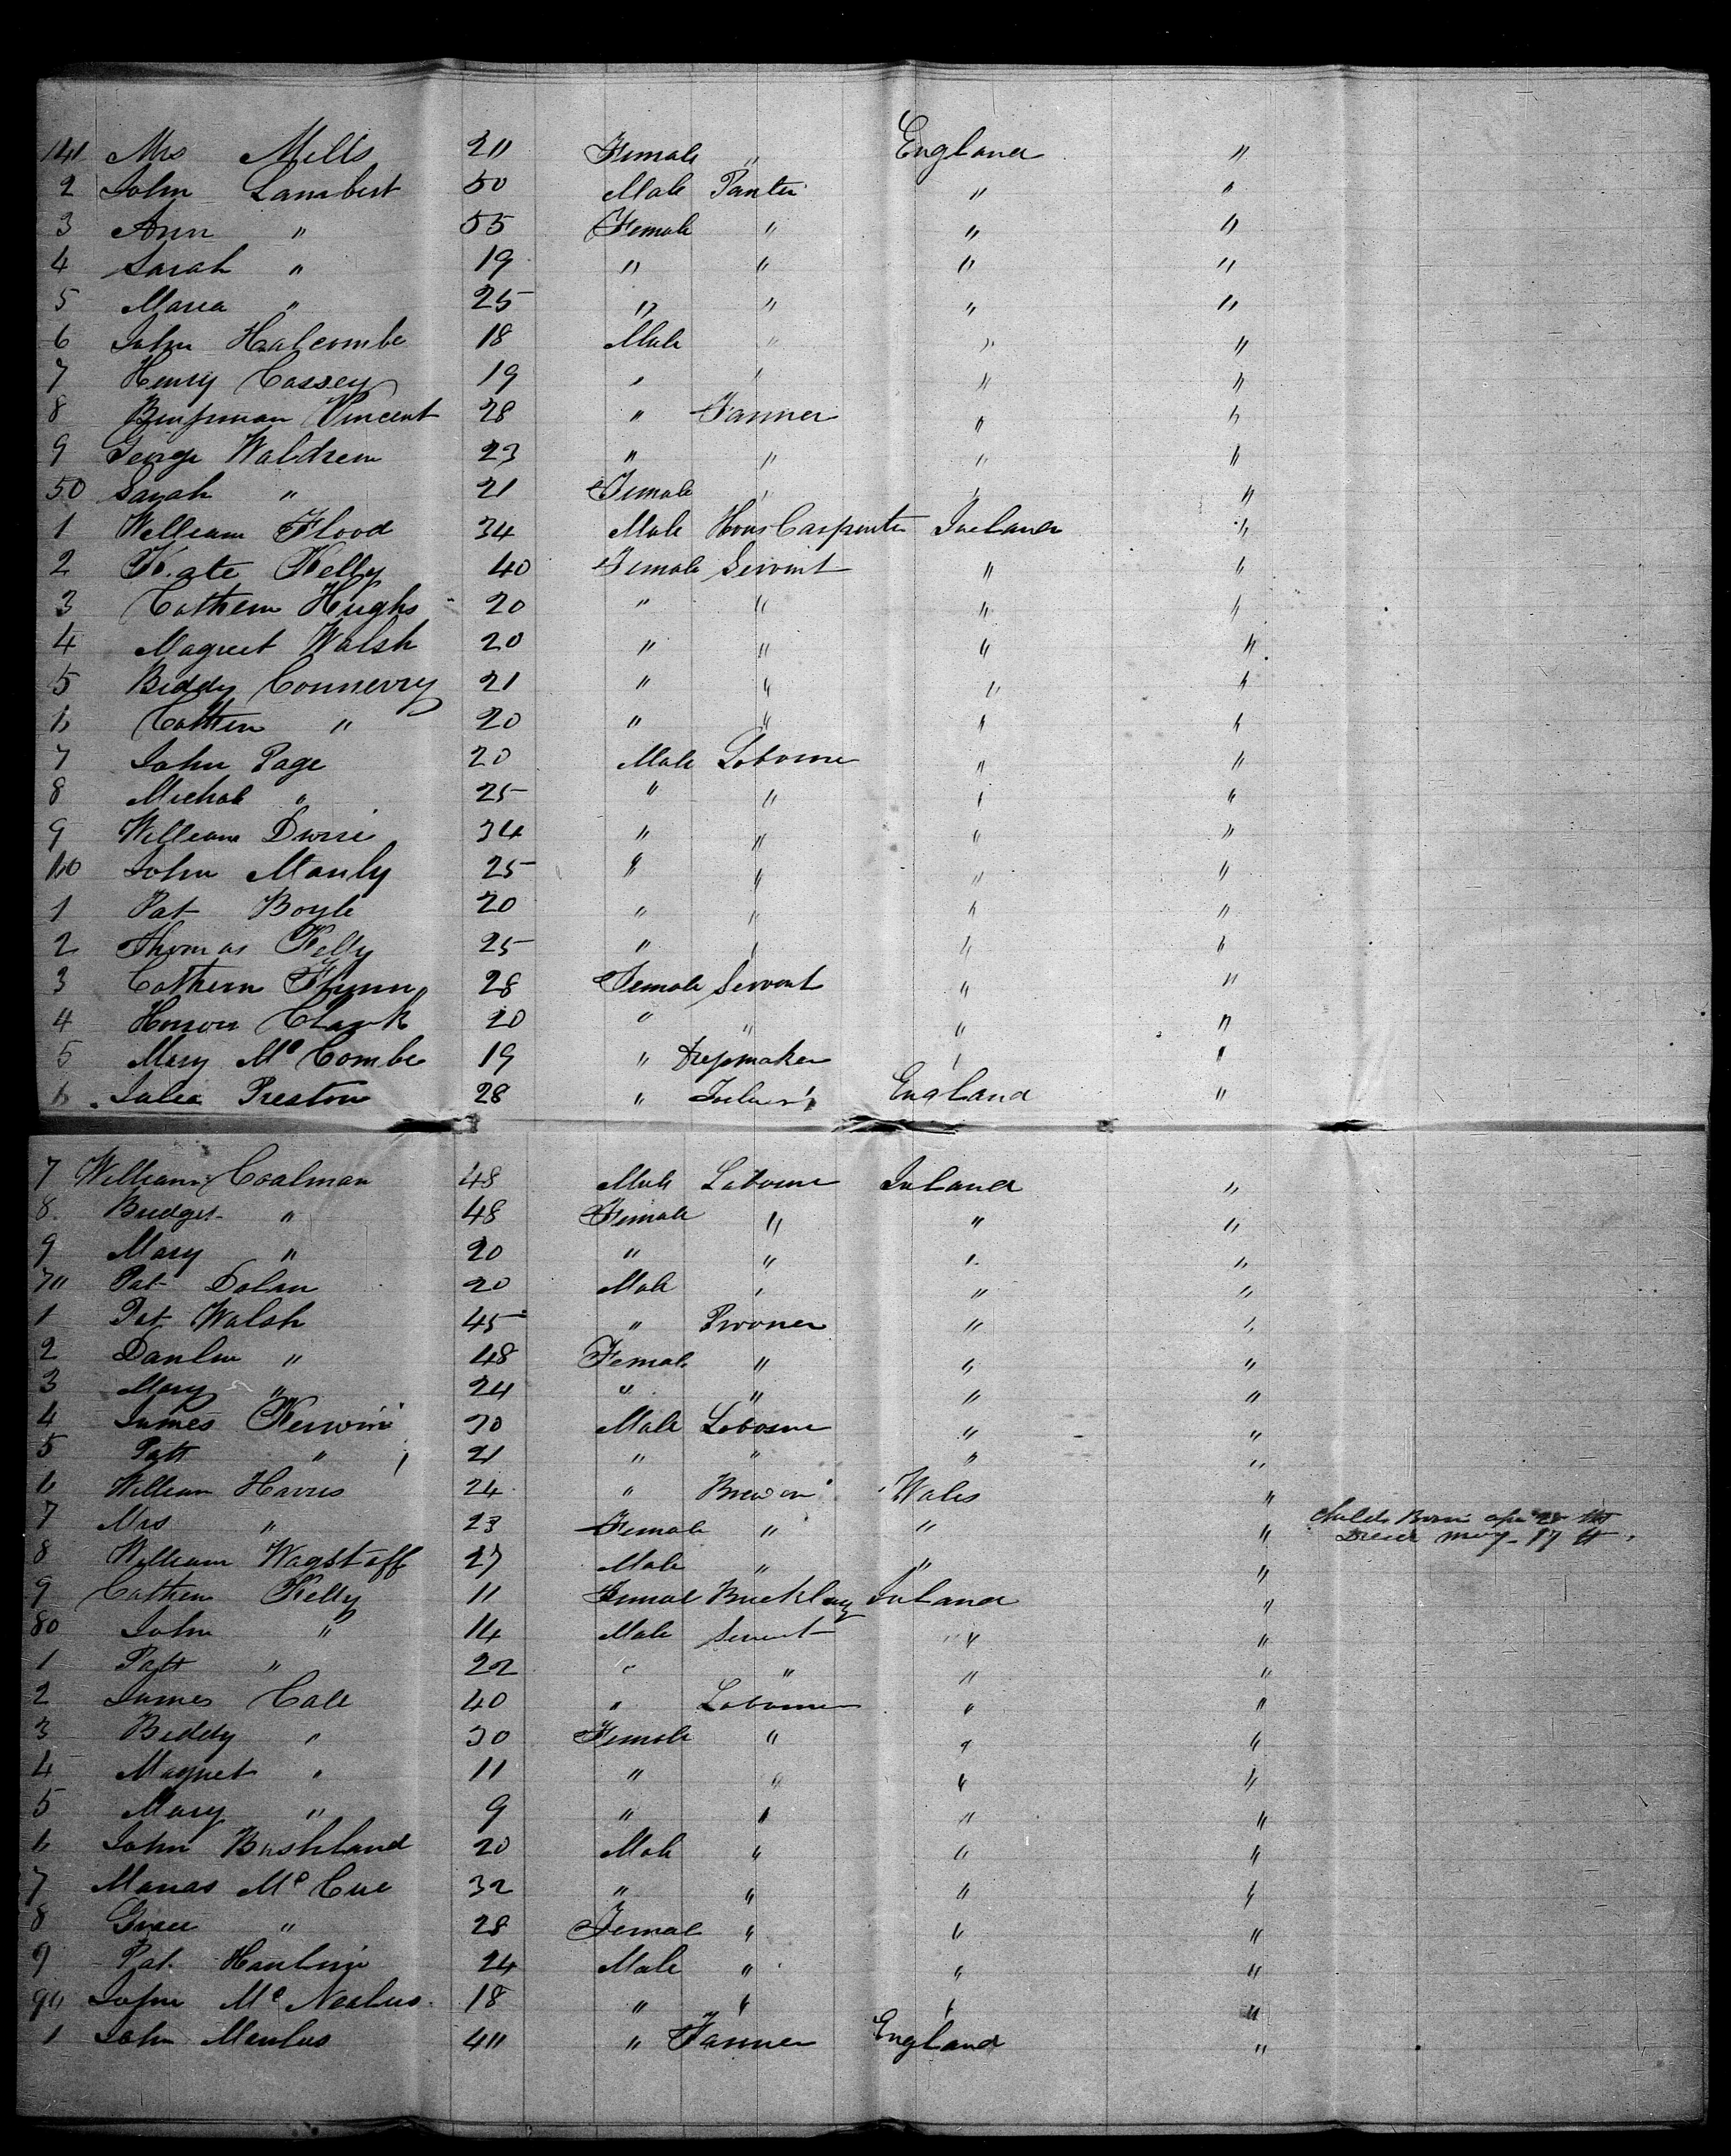 141 Mrs Mills 20 Female " England "
2 John Lambert 50 Male Panter " "
3 Ann " 55 Female " " "
4 Sarah " 19 " " " "
5 Maria " 25 " " " "
6 John Halcombe 18 Male " " "
7 Henry Cassey 19 " " " "
8 Vincent 28 " Farmer " "
9 George Waldren 23 " " " "
50 Sarah " 21 Female " " "
1 William Flood 34 Male Hous Carpenter Ireland "
2 Kate Kelly 40 Female Servent " "
3 Cathern Hughs 20 " " " "
4 Magret Walsh 20 " " " "
5 Biddy Connerry 21 " " " "
6 Cathern " 20 " " " "
7 John Page 20 Male Laborer " "
8 Michal " 25 " " " "
9 William 34 " " " "
160 John Manly 25 " " " "
1 Pat Boyle 20 " " " "
2 Thomas Kelly 25 " " " "
3 Cathern Flynn 28 Female Servent " "
4 Honor Clark 20 " " " "
5 Mary Mc Combe 19 " Dressmaker " "
6 Julia Preston 28 " England "
7 William Coalman 48 Male Laborer Ireland "
8 Bridget " 48 Female " " "
9 Mary " 20 " " " "
70 Pat Dolan 20 Male " " "
1 Pat Walsh 45 " " "
2 " 48 Female " " "
3 Mary " 24 " " " "
4 James Kerwin 30 Male Laborer " "
5 Patt " 21 " " " "
6 William Harris 24 " Wales "
7 Mrs " 23 Female " " " Childe Born
Died may 17
8 William Wagstaff 27 Male " " "
9 Cathern Kelly 11 Femal Ireland "
80 John " 14 Male Servent " "
1 Patt " 22 " " " "
2 James Call 40 " Laborer " "
3 Biddy " 30 Female " " "
4 Magret " 11 " " " "
5 Mary " 9 " " " "
6 John Bushland 20 Male " " "
7 Manas Mc Cue 32 " " " "
8 Grace " 28 Femal " " "
9 Pat 24 Male " " "
90 John Mc 18 " " " "
1 John 40 " Farmer England "